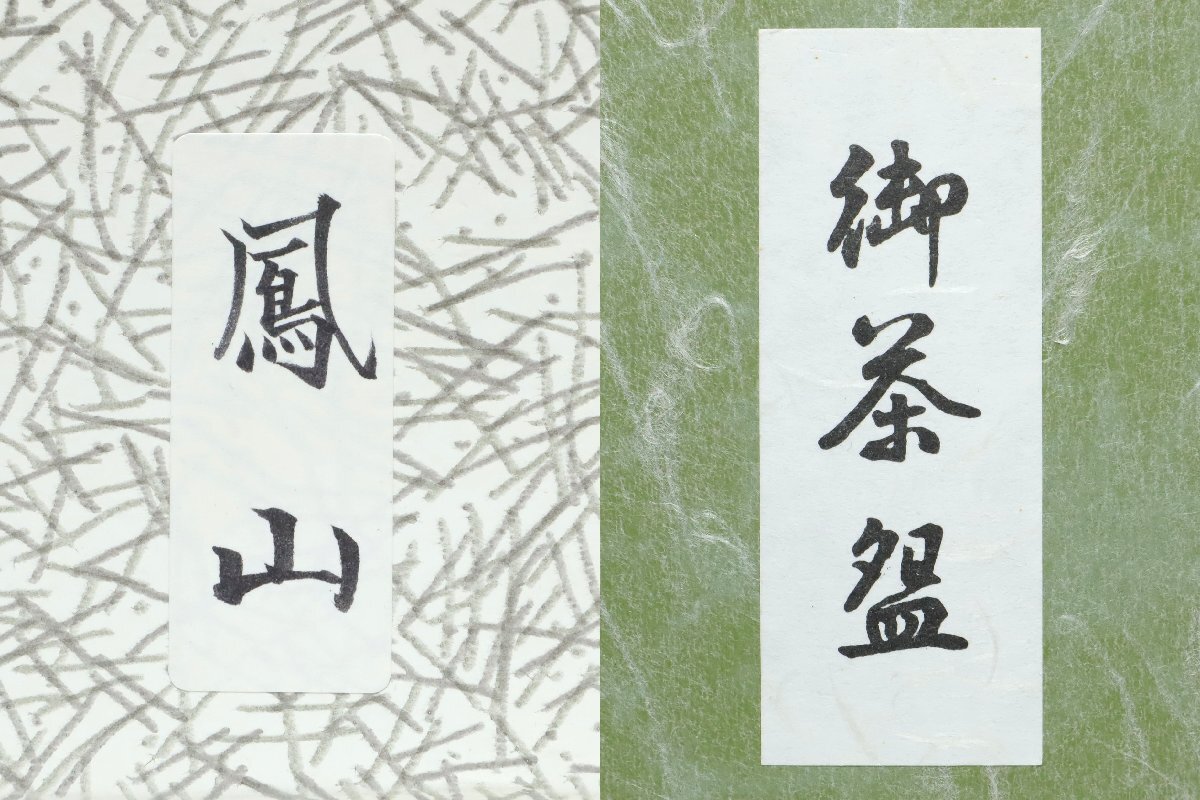 鳳山
御茶盌